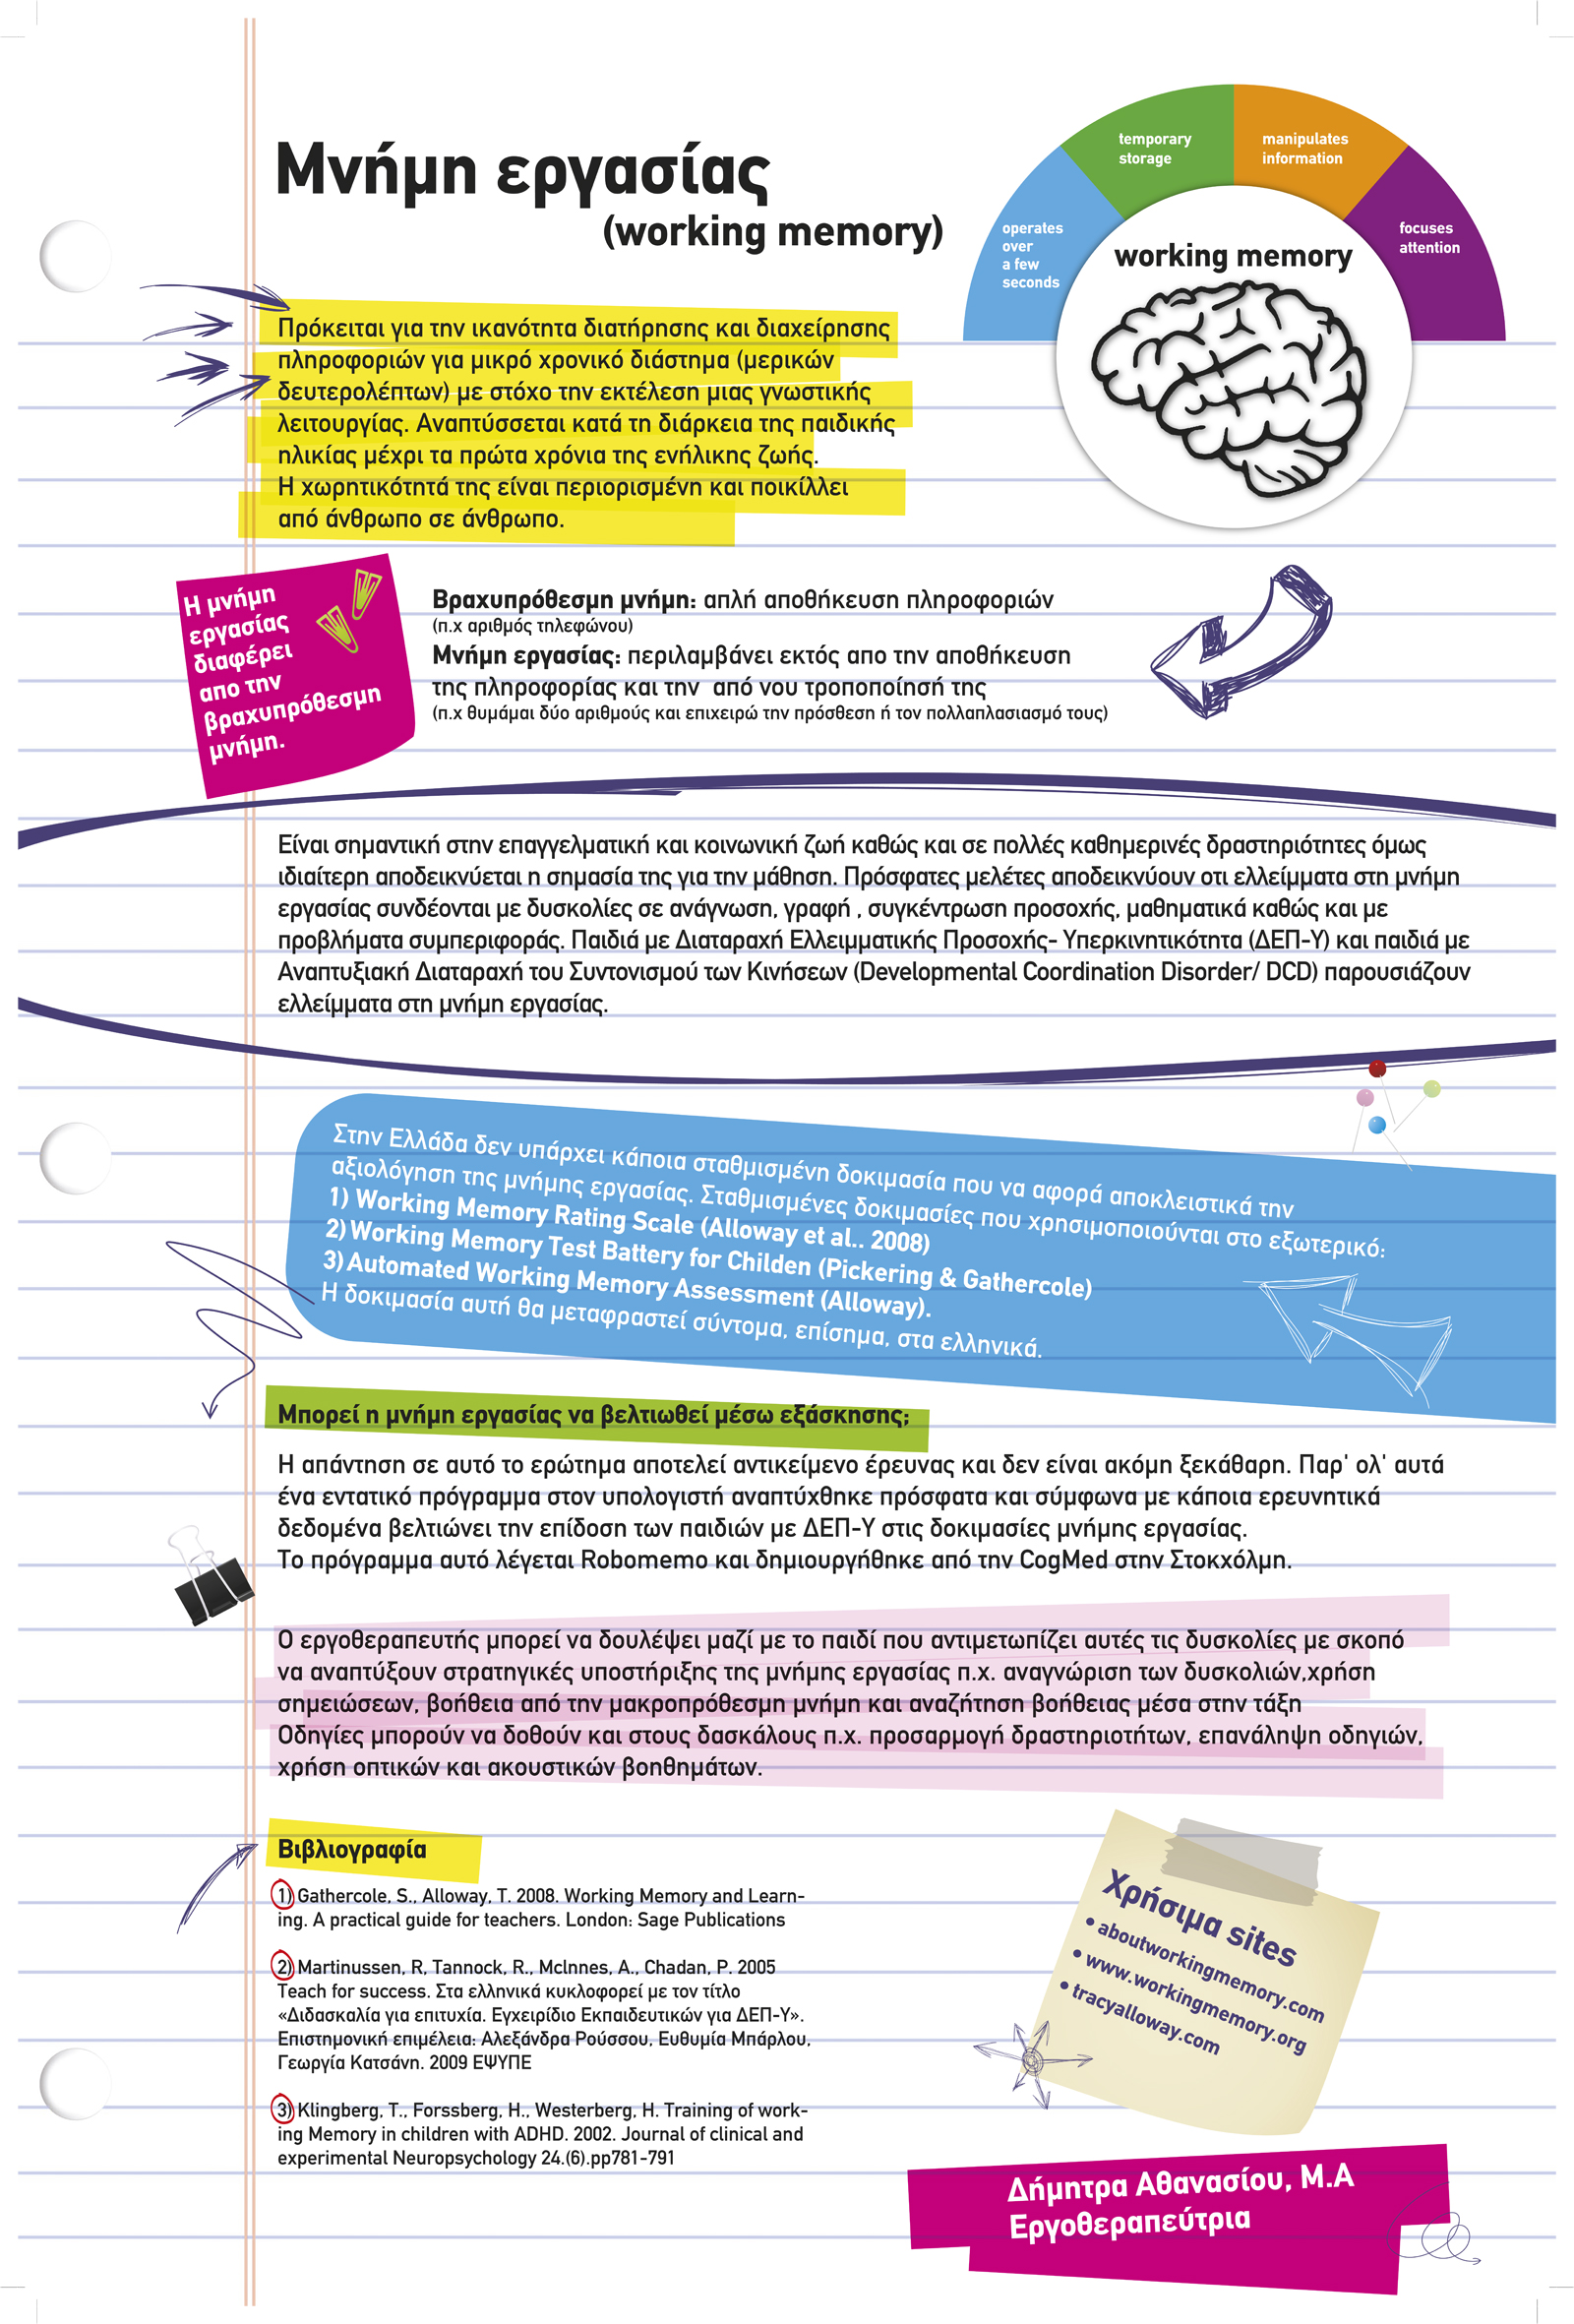 Μνήμη εργασίας
(working memory)
operates
over
a few
seconds
temporary
storage
manipulates
information
focuses
attention
working memory
Πρόκειται για την ικανότητα διατήρησης και διαχείρησης
πληροφοριών για μικρό χρονικό διάστημα (μερικών
δευτερολέπτων) με στόχο την εκτέλεση μιας γνωστικής
λειτουργίας. Αναπτύσσεται κατά τη διάρκεια της παιδικής
ηλικίας μέχρι τα πρώτα χρόνια της ενήλικης ζωής.
Η χωρητικότητά της είναι περιορισμένη και ποικίλλει
από άνθρωπο σε άνθρωπο.
Η μνήμη
εργασίας
διαφέρει
απο την
βραχυπρόθεσμη
μνήμη.
Βραχυπρόθεσμη μνήμη: απλή αποθήκευση πληροφοριών
(π.χ αριθμός τηλεφώνου)
Μνήμη εργασίας: περιλαμβάνει εκτός απο την αποθήκευση
της πληροφορίας και την από νου τροποποίησή της
(π.χ θυμάμαι δύο αριθμούς και επιχειρώ την πρόσθεση ή τον πολλαπλασιασμό τους)
Είναι σημαντική στην επαγγελματική και κοινωνική ζωή καθώς και σε πολλές καθημερινές δραστηριότητες όμως
ιδιαίτερη αποδεικνύεται η σημασία της για την μάθηση. Πρόσφατες μελέτες αποδεικνύουν οτι ελλείμματα στη μνήμη
εργασίας συνδέονται με δυσκολίες σε ανάγνωση, γραφή , συγκέντρωση προσοχής, μαθηματικά καθώς και με
προβλήματα συμπεριφοράς. Παιδιά με Διαταραχή Ελλειμματικής Προσοχής- Υπερκινητικότητα (ΔΕΠ-Υ) και παιδιά με
Αναπτυξιακή Διαταραχή του Συντονισμού των Κινήσεων (Developmental Coordination Disorder/ DCD) παρουσιάζουν
ελλείμματα στη μνήμη εργασίας.
Στην Ελλάδα δεν υπάρχει κάποια σταθμισμένη δοκιμασία που να αφορά αποκλειστικά την
αξιολόγηση της μνήμης εργασίας. Σταθμισμένες δοκιμασίες που χρησιμοποιούνται στο εξωτερικό:
1) Working Memory Rating Scale (Alloway et al.. 2008)
2) Working Memory Test Battery for Childen (Pickering & Gathercole)
3) Automated Working Memory Assessment (Alloway).
Η δοκιμασία αυτή θα μεταφραστεί σύντομα, επίσημα, στα ελληνικά.
Μπορεί η μνήμη εργασίας να βελτιωθεί μέσω εξάσκησης;
Η απάντηση σε αυτό το ερώτημα αποτελεί αντικείμενο έρευνας και δεν είναι ακόμη ξεκάθαρη. Παρ' ολ' αυτά
ένα εντατικό πρόγραμμα στον υπολογιστή αναπτύχθηκε πρόσφατα και σύμφωνα με κάποια ερευνητικά
δεδομένα βελτιώνει την επίδοση των παιδιών με ΔΕΠ-Υ στις δοκιμασίες μνήμης εργασίας.
Το πρόγραμμα αυτό λέγεται Robomemo και δημιουργήθηκε από την CogMed στην Στοκχόλμη.
Ο εργοθεραπευτής μπορεί να δουλέψει μαζί με το παιδί που αντιμετωπίζει αυτές τις δυσκολίες με σκοπό
να αναπτύξουν στρατηγικές υποστήριξης της μνήμης εργασίας π.χ. αναγνώριση των δυσκολιών,χρήση
σημειώσεων, βοήθεια από την μακροπρόθεσμη μνήμη και αναζήτηση βοήθειας μέσα στην τάξη
Οδηγίες μπορούν να δοθούν και στους δασκάλους π.χ. προσαρμογή δραστηριοτήτων, επανάληψη οδηγιών,
χρήση οπτικών και ακουστικών βοηθημάτων.
Βιβλιογραφία
1) Gathercole, S., Alloway, T. 2008. Working Memory and Learn-
ing. A practical guide for teachers. London: Sage Publications
2) Martinussen, R, Tannock, R., McInnes, A., Chadan, P. 2005
Teach for success. Στα ελληνικά κυκλοφορεί με τον τίτλο
«Διδασκαλία για επιτυχία. Εγχειρίδιο Εκπαιδευτικών για ΔΕΠ-Υ».
Επιστημονική επιμέλεια: Αλεξάνδρα Ρούσσου, Ευθυμία Μπάρλου,
Γεωργία Κατσάνη. 2009 ΕΨΥΠΕ
3) Klingberg, T., Forssberg, H., Westerberg, H. Training of work-
ing Memory in children with ADHD. 2002. Journal of clinical and
experimental Neuropsychology 24.(6).pp781-791
Χρήσιμα sites
• aboutworkingmemory.com
• www.workingmemory.org
• tracyalloway.com
Δήμητρα Αθανασίου, Μ.Α
Εργοθεραπεύτρια